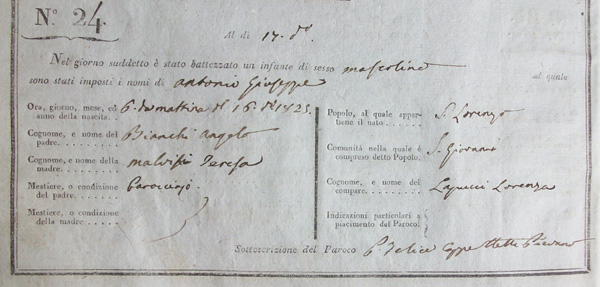 N.º 24.
Al dì 17. dº
Nel giorno suddetto è stato battezzato un infante di sesso mascolino al quale
sono stati imposti i nomi di Antonio Giuseppe
Ora, giorno, mese, ed 6. da mattina dl 16. dº 1825.
anno della nascita.
Cognome, e nome del Bianchi Angelo
padre.
Cognome, e nome della Malvisi Teresa
madre.
Mestiere, o condizione
del padre.
Mestiere, o condizione
della madre.
Popolo, al quale appar- S. Lorenzo
tiene il nato.
Comunità nella quale è S. Giovanni
compreso detto Popolo.
Cognome, e nome del Lapucci Lorenza
compare.
Indicazioni particolari a
piacimento del Paroco.
Sottoscrizione del Paroco P. Felice